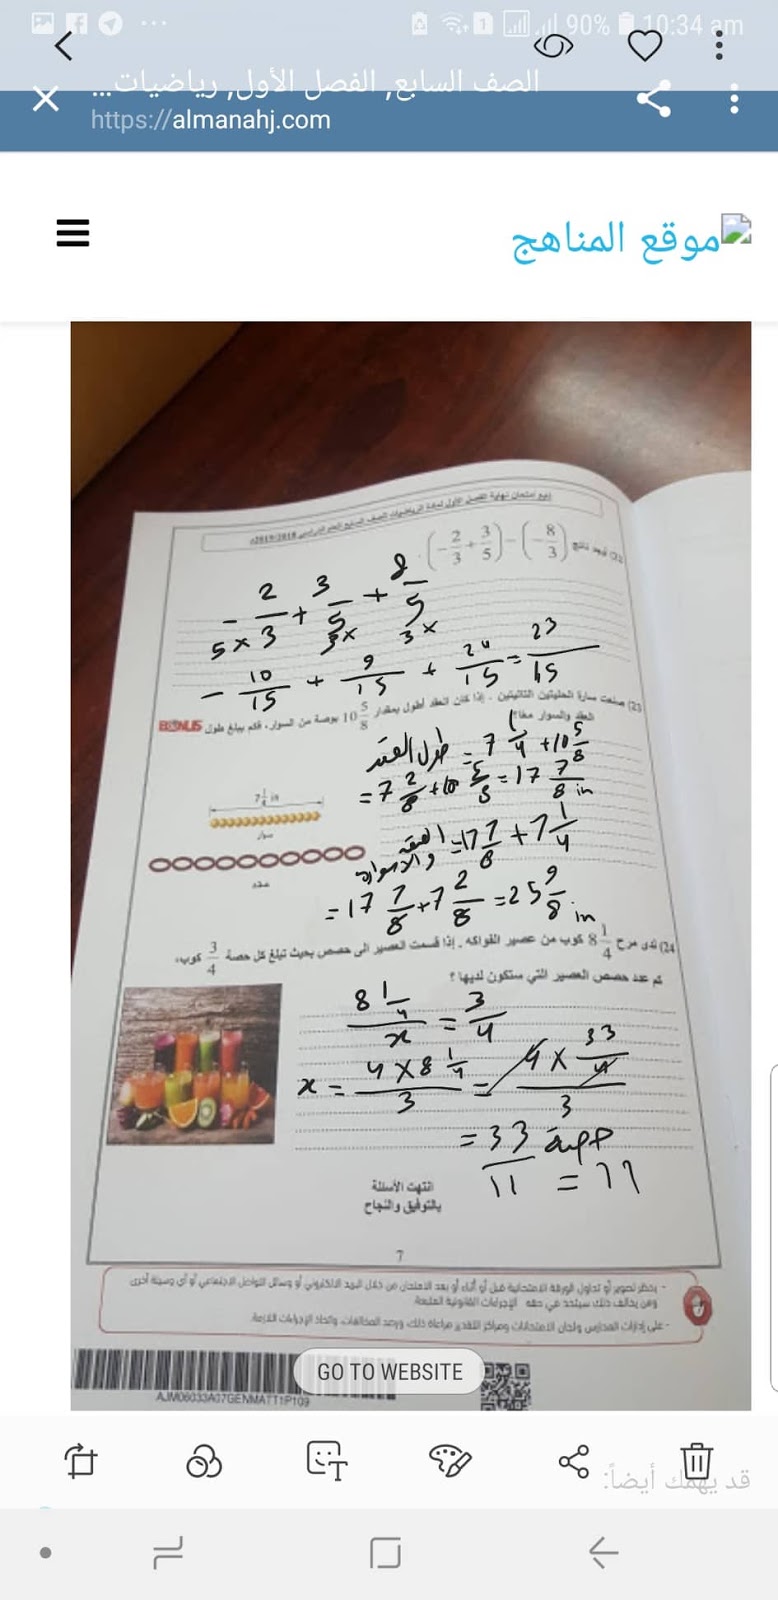 90% 10:34 am
الصف السابع, الفصل الأول, رياضيات...
https://almanahj.com
موقع المناهج
(22) أوجد ناتج (-2/3 + 3/5) - (-8/3)
- 2/3 + 3/5 + 8/5
5 × 3 3 × 3 ×
- 10/15 + 9/15 + 24/15 = 23/15
(23) صنعت سارة الحليتين التاليتين . إذا كان العقد أطول بمقدار 10 5/8 بوصة من السوار، فكم يبلغ طول BONUS
العقد والسوار معًا؟
طول العقد = 7 1/4 + 10 5/8
= 7 2/8 + 10 5/8 = 17 7/8 in
7 1/4 in
سوار
= 17 7/8 + 7 1/4
عقد
= 17 7/8 + 7 2/8 = 25 9/8 in
(24) لدى مرح 8 1/4 كوب من عصير الفواكه . إذا قسمت العصير الى حصص بحيث تبلغ كل حصة 3/4 كوب،
كم عدد حصص العصير التي ستكون لديها ؟
8 1/4 / x = 3/4
x = 4 × 8 1/4 / 3 = 4 × 33/4 / 3
= 33/11 حصة
= 11
انتهت الأسئلة
بالتوفيق والنجاح
7
- يحظر تصوير أو تداول الورقة الامتحانية قبل أو أثناء أو بعد الامتحان من خلال البريد الالكتروني أو وسائل التواصل الاجتماعي أو أي وسيلة أخرى
ومن يخالف ذلك سيتخذ في حقه الإجراءات القانونية المتبعة.
- على إدارات المدارس ولجان الامتحانات ومراكز التقدير مراعاة ذلك، ورصد المخالفات، واتخاذ الإجراءات اللازمة.
GO TO WEBSITE
AJM06033A07GENMATT1P109
قد يهمك أيضاً: